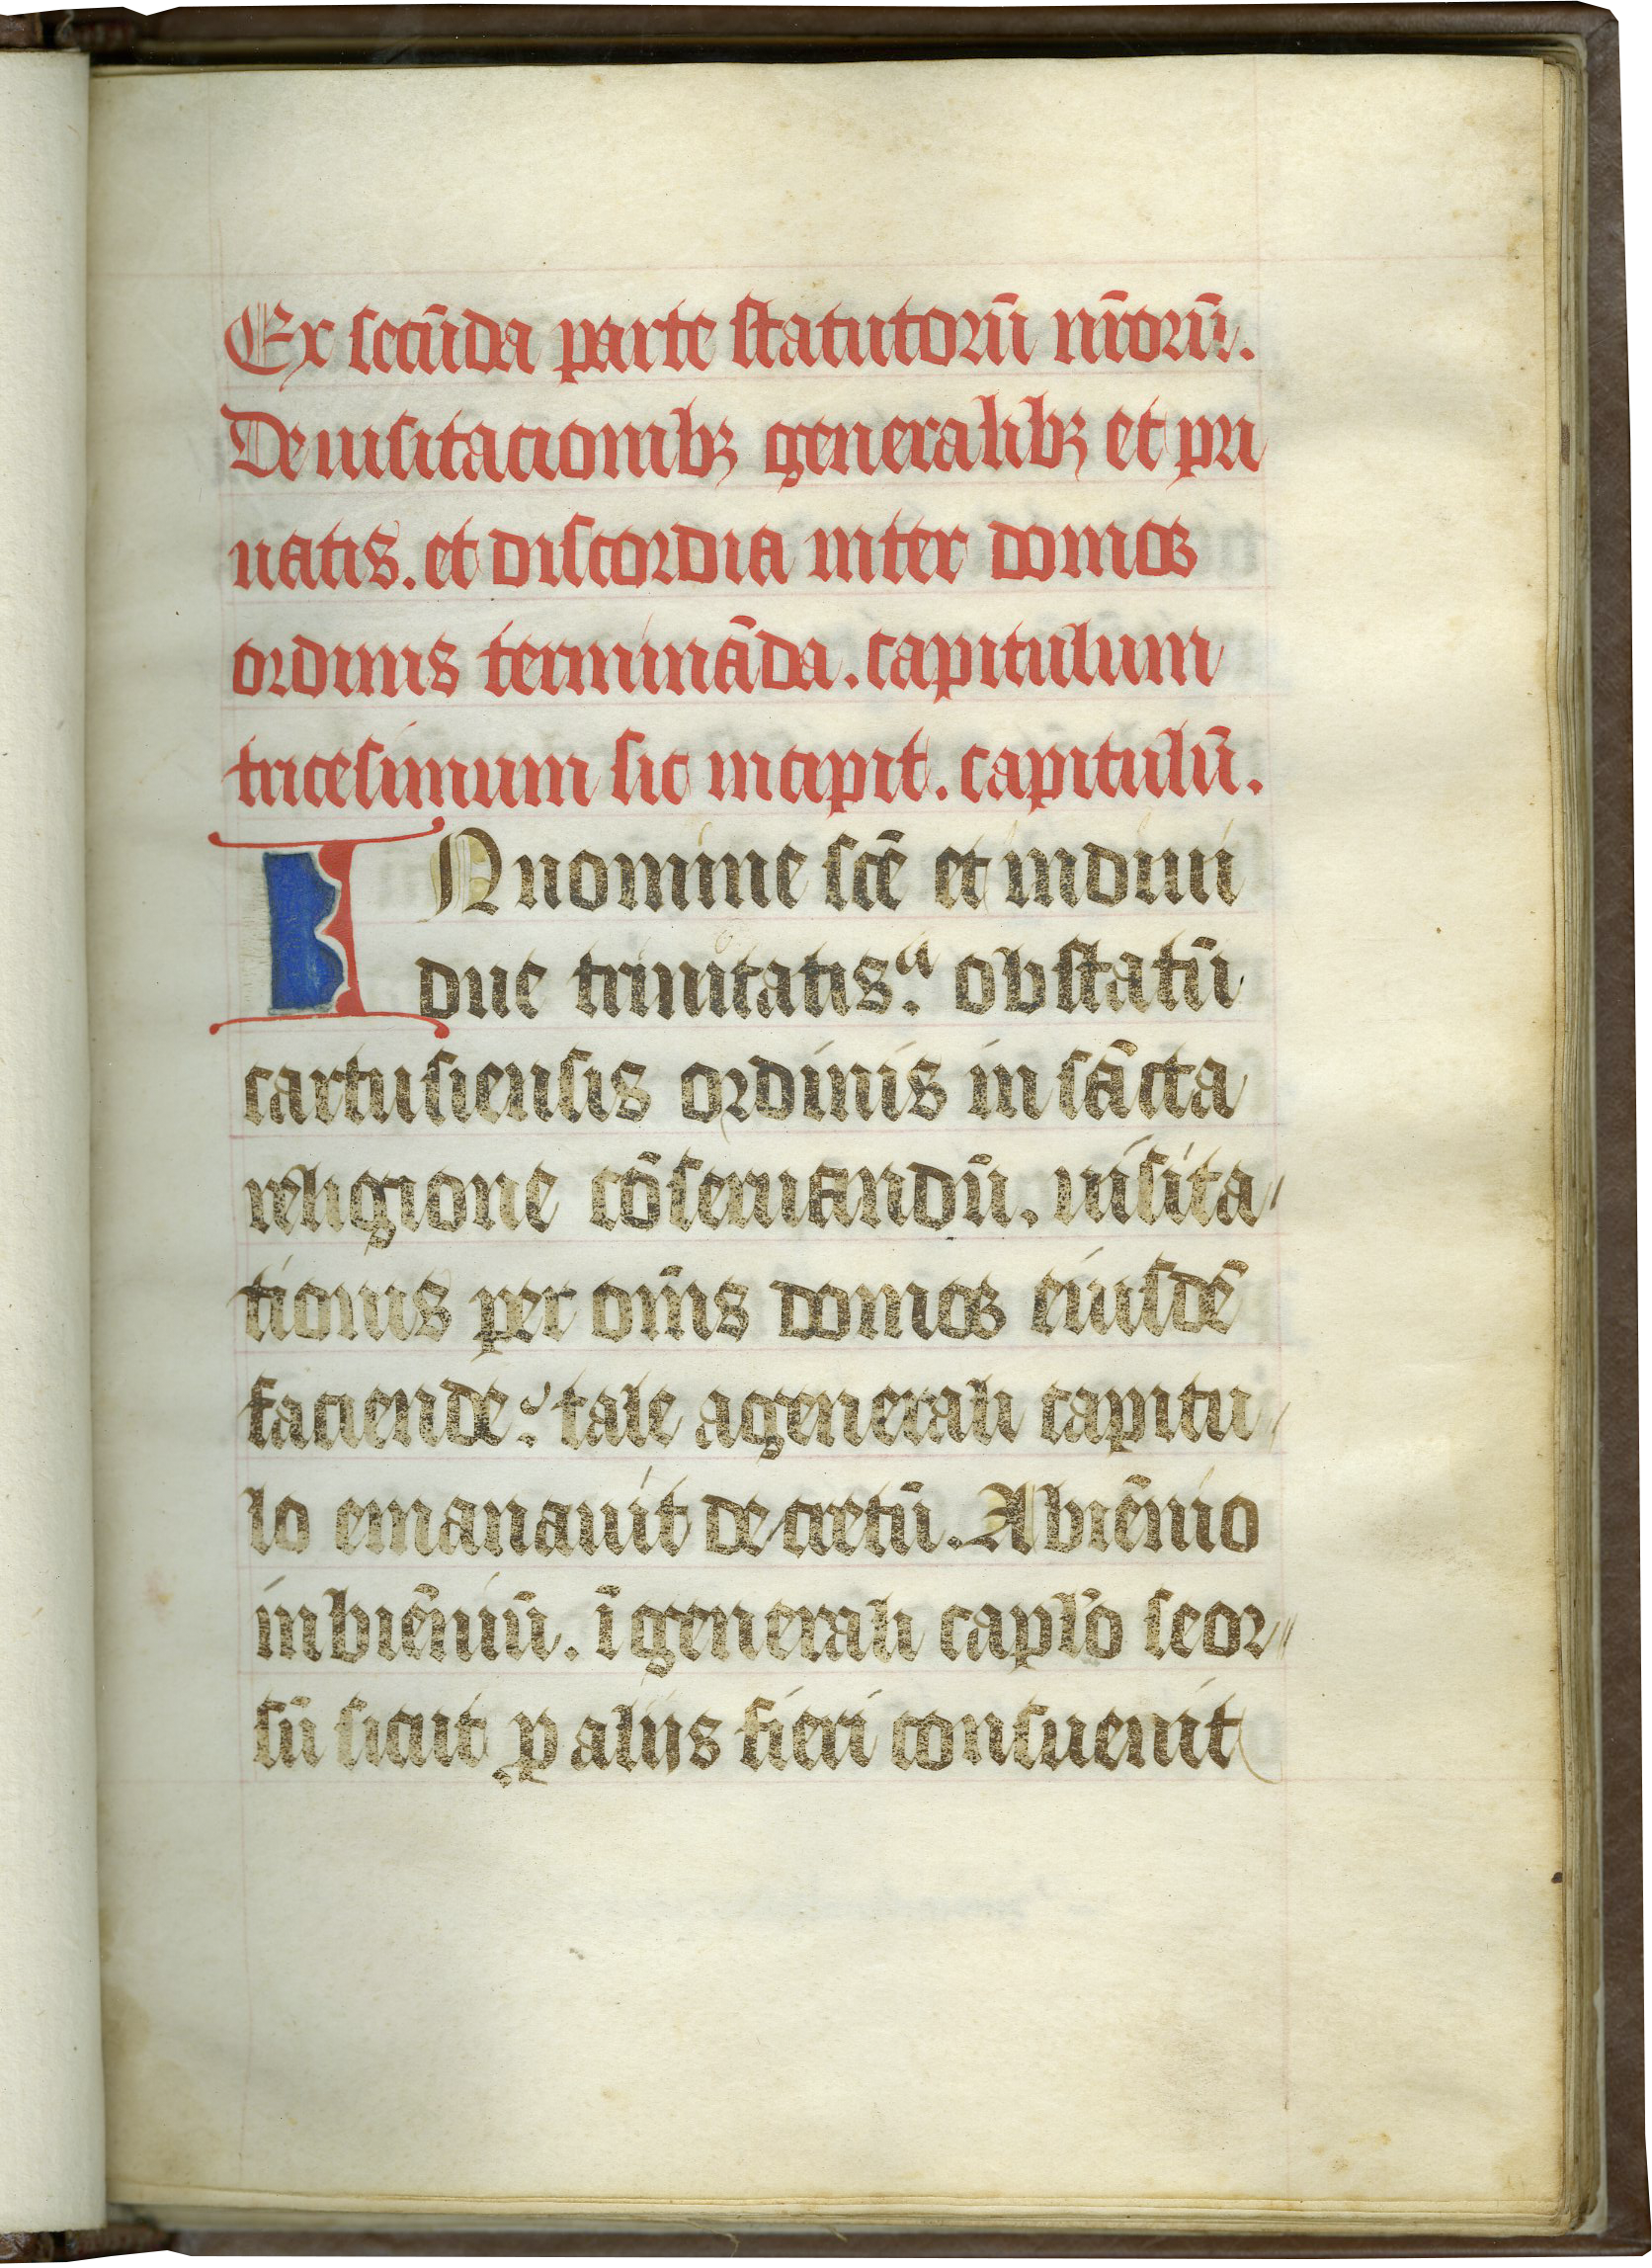 Ex secūda parte statutorū nr̄orū.
De uisitacionibꝫ generalibꝫ et pri
uatis. et discordia inter domos
ordinis termināda. capitulum
tricesimum sic incipit. capitulū.
IN nomine scē et indiui
due trinitatis. obstatū
cartusiensis ordinis in sācta
religione cōseruandū. uisita
tionis per om̄s domos eiusdē
faciende: tale a generali capitu
lo emanauit decretū. A biēnio
in biēniū. ī generali capl̄o seor
sū sicut ꝓ alijs fieri consueuit